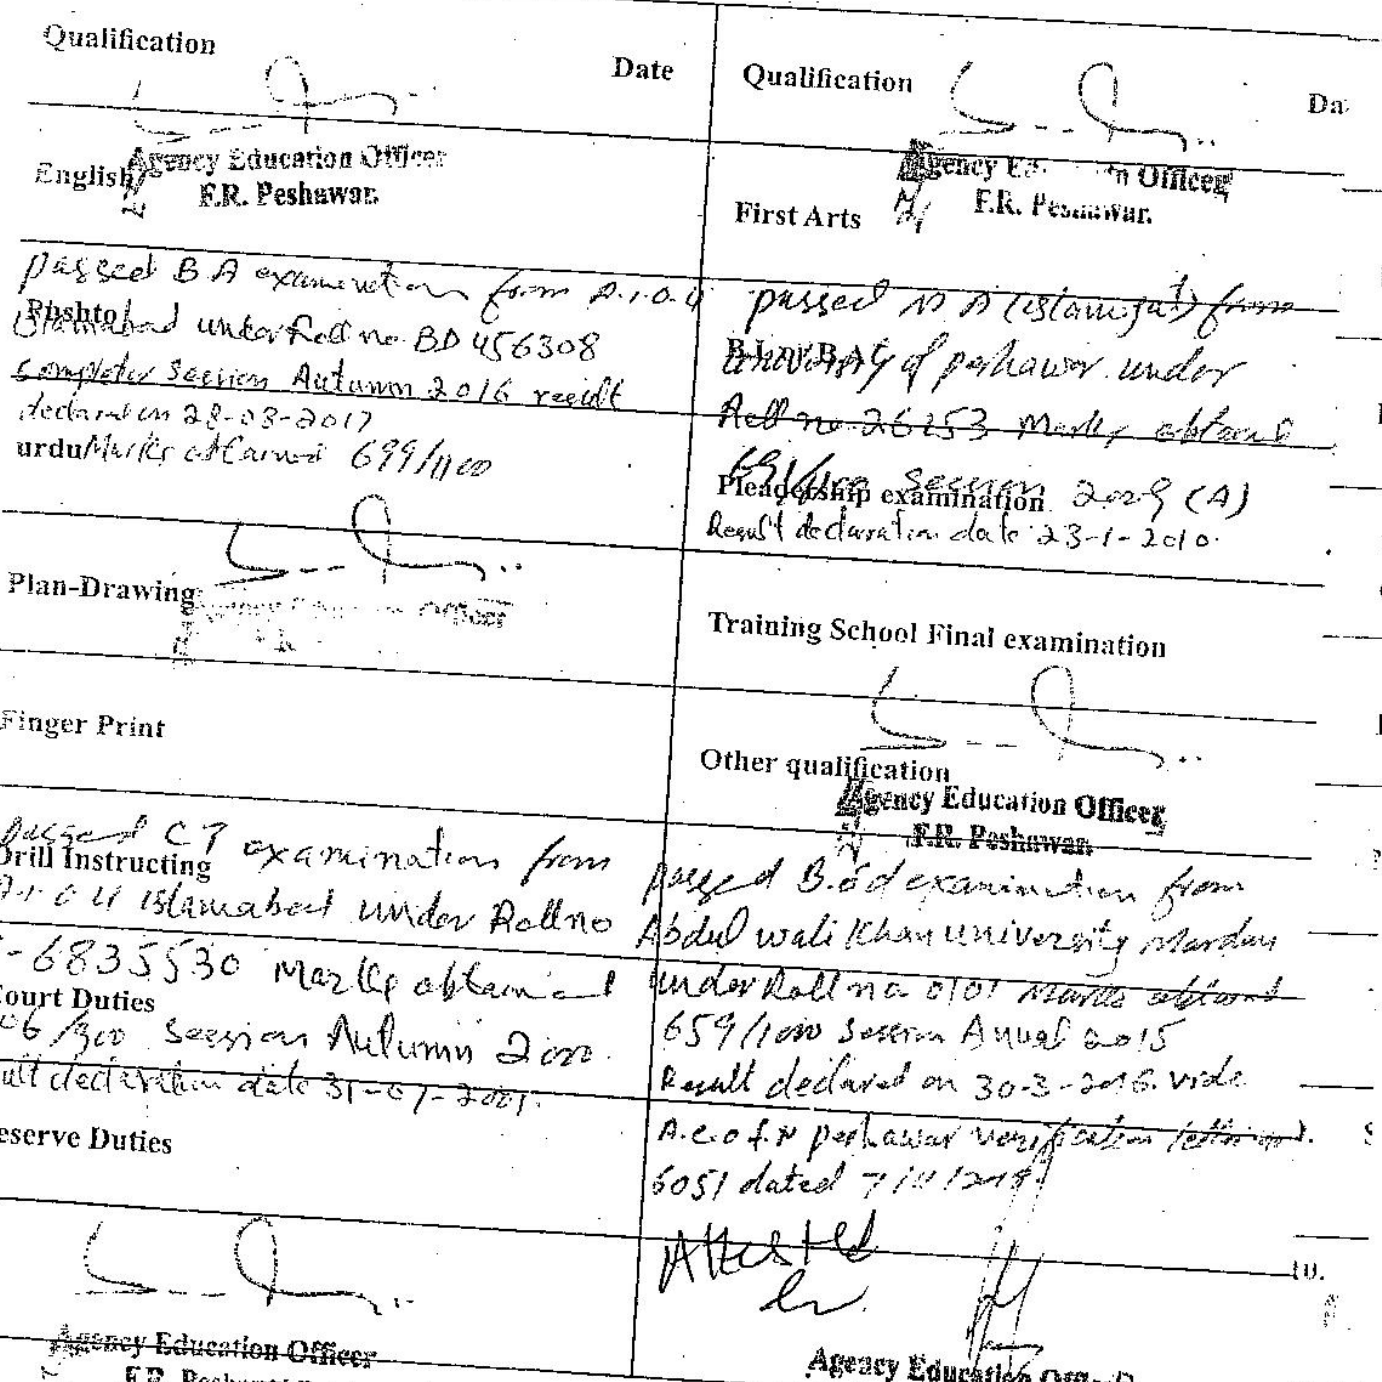 Qualification
Date
Agency Education Officer
English
F.R. Peshawar.
passed B A examination from A.I.O.U
Pushto
Islamabad under Roll no BD 456308
completer session Autumn 2016 result
declared on 28-03-2017
urdu Marks obtained 699/1100
Plan-Drawing
Agency Education Officer
Finger Print
passed CT examination from
Drill Instructing
A.I.O.U Islamabad under Roll no
-6835530 Marks obtained
Court Duties
06/900 Session Autumn 2000.
ult declaration date 31-07-2001.
eserve Duties
Agency Education Officer
F.R. Peshawar
Qualification
Da
Agency Education Officer
F.R. Peshawar.
First Arts
passed M A (islamyat) from
B.L or B.A
university of peshawar under
Roll no 26253 Marks obtained
691/1100 Session 2009 (A)
Pleadership examination
Result declaration date 23-1-2010.
Training School Final examination
Other qualification
Agency Education Officer
F.R. Peshawar.
passed B.ed examination from
Abdul wali Khan university Mardan
under Roll no 0101 Marks obtained
659/1000 Session Anual 2015
Result declared on 30-3-2016. vide
A.E.O F.R peshawar verification letter no
6051 dated 7/11/
Attested
10.
Agency Education